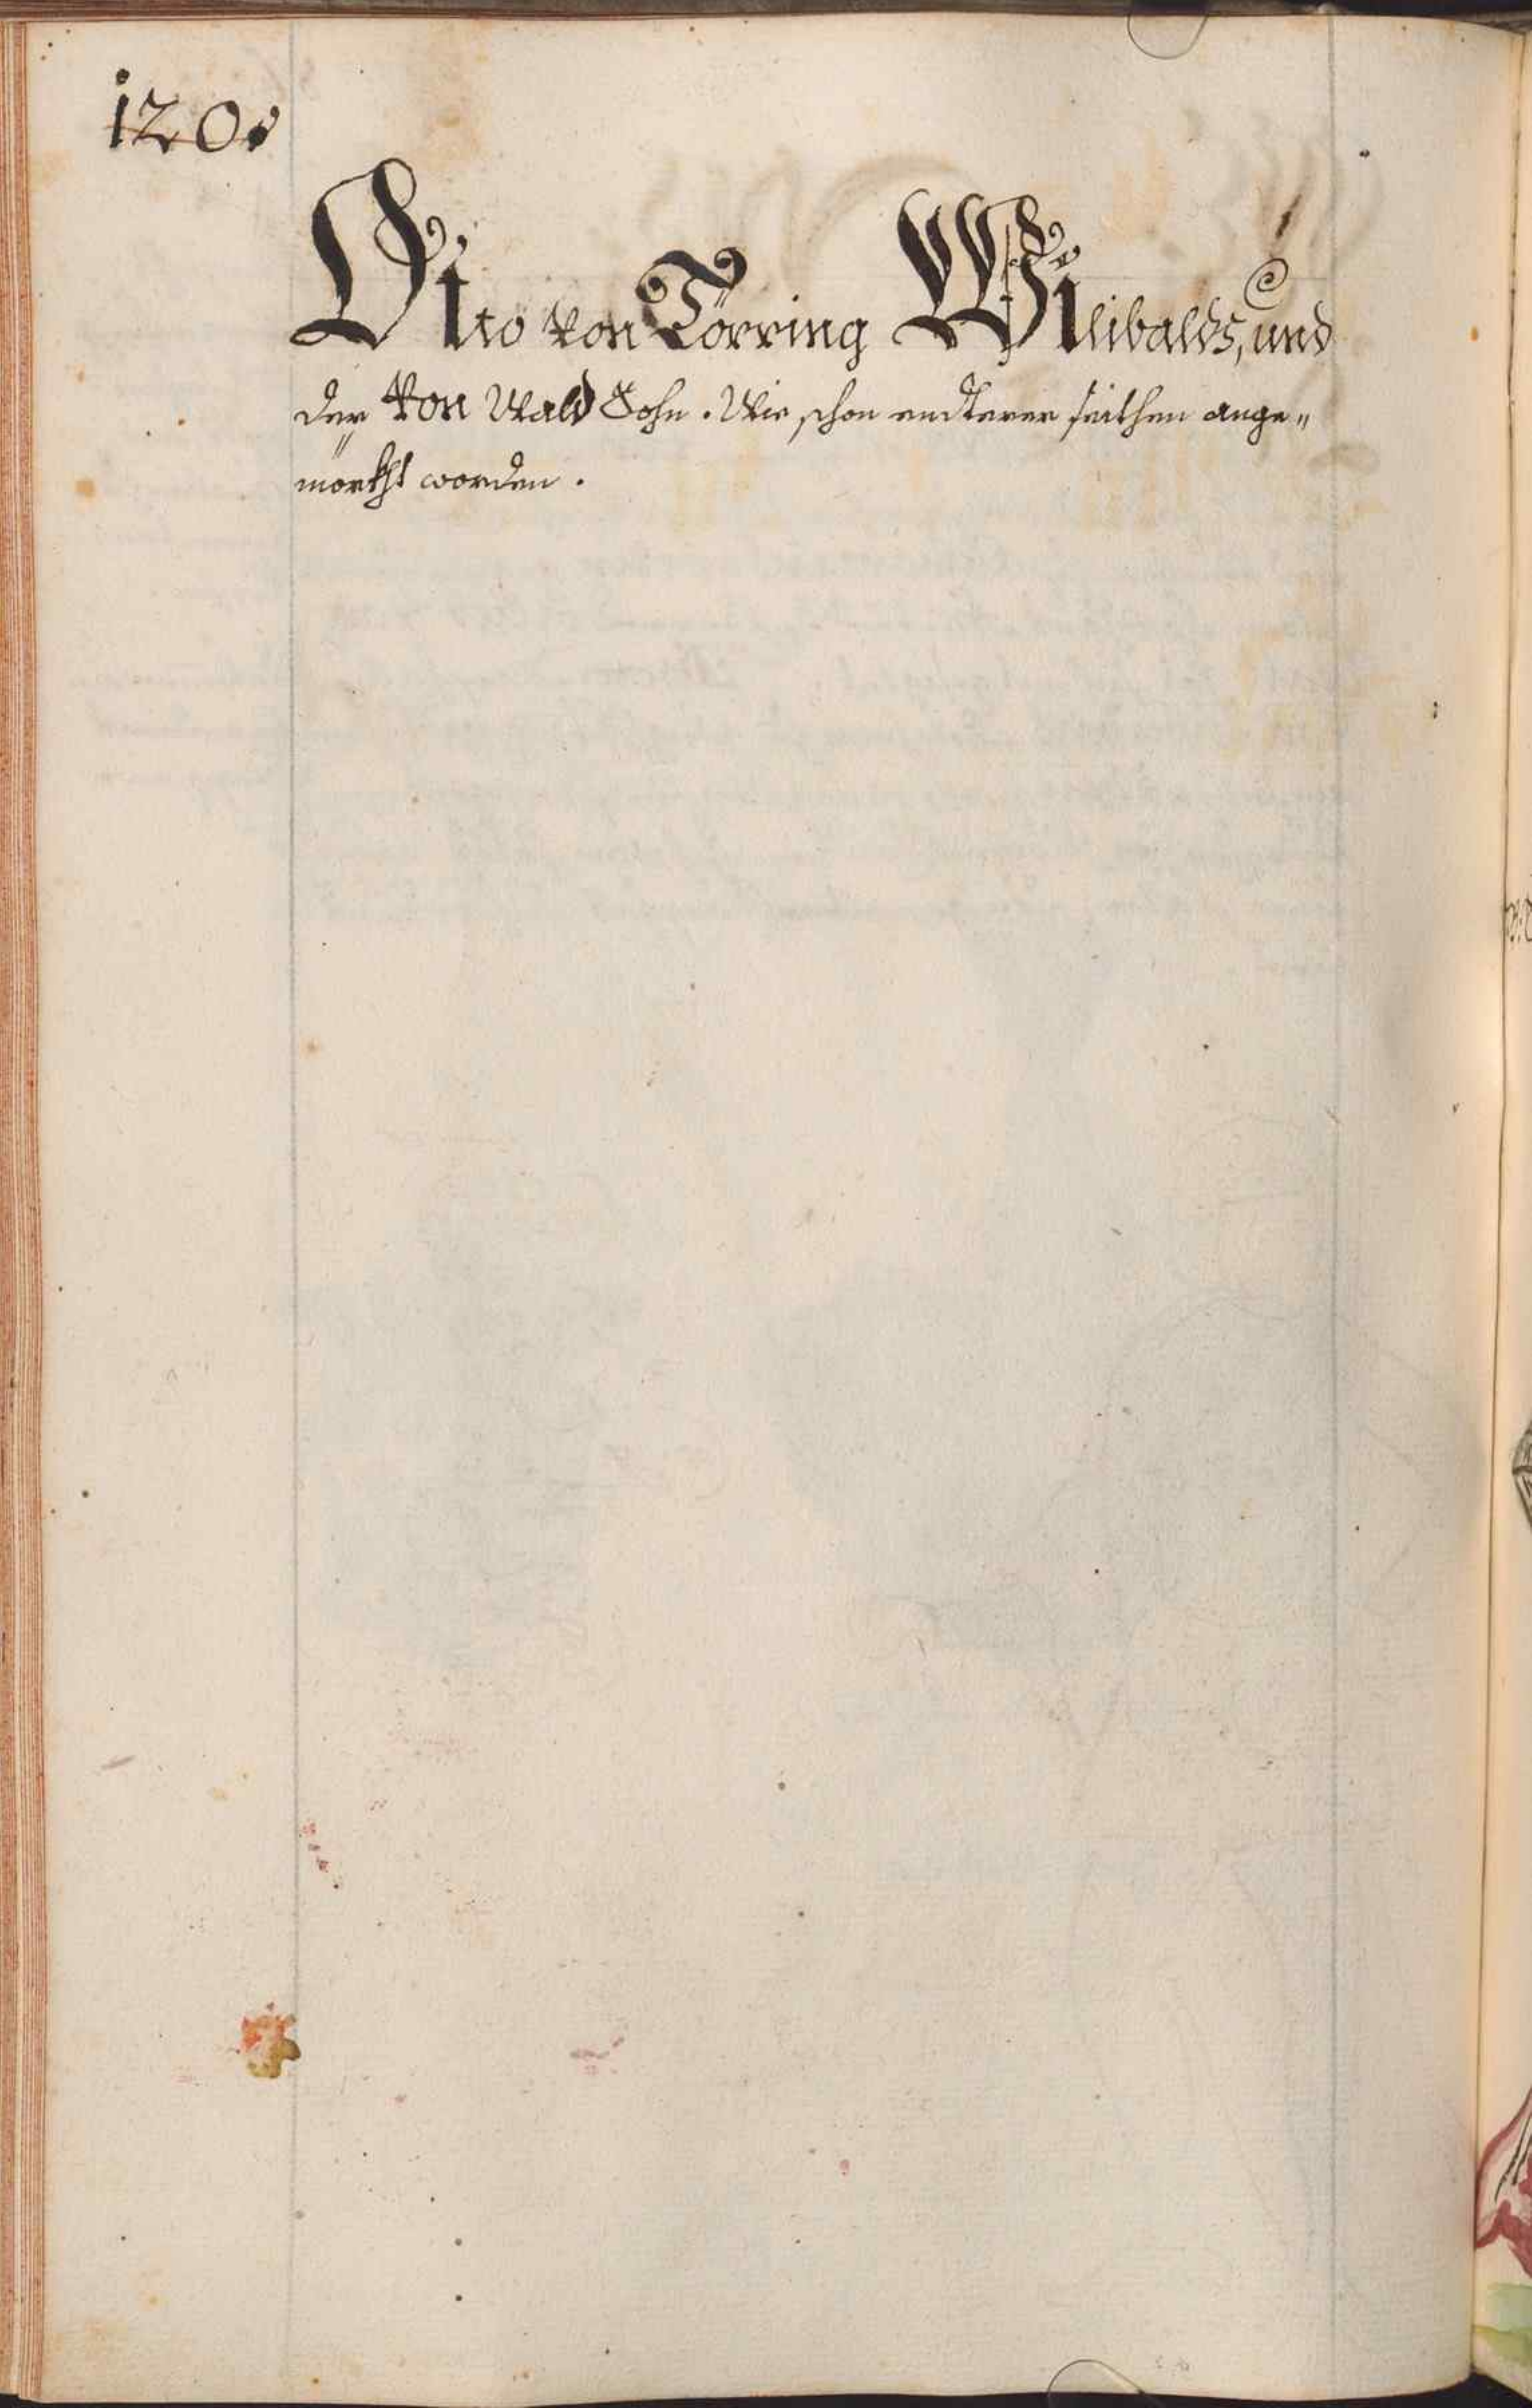 120.
Otto von Törring Wilibalds, und
der von Wald Sohn. Wie schon andterer seithen ange„
mörkht worden.